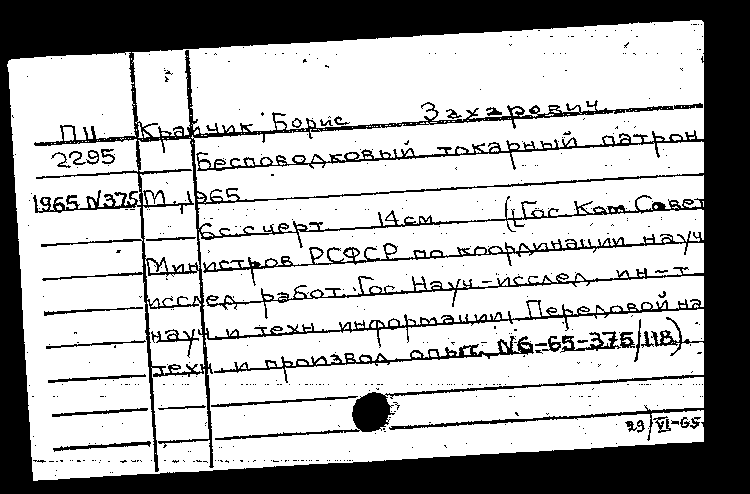 П11 Крайчик, Борис Захарович.
2295 Бесповодковый токарный патрон
1965 N375 М., 1965
6с. с черт 14 см. ([Гос. Ком. Совет
Министров РСФСР по координации науч
исслед. работ. Гос. Науч-исслед. ин-т
науч. и техн. информации] Передовой на
техн. и производ. опыт, N6-65-375/118).
29/VI-65